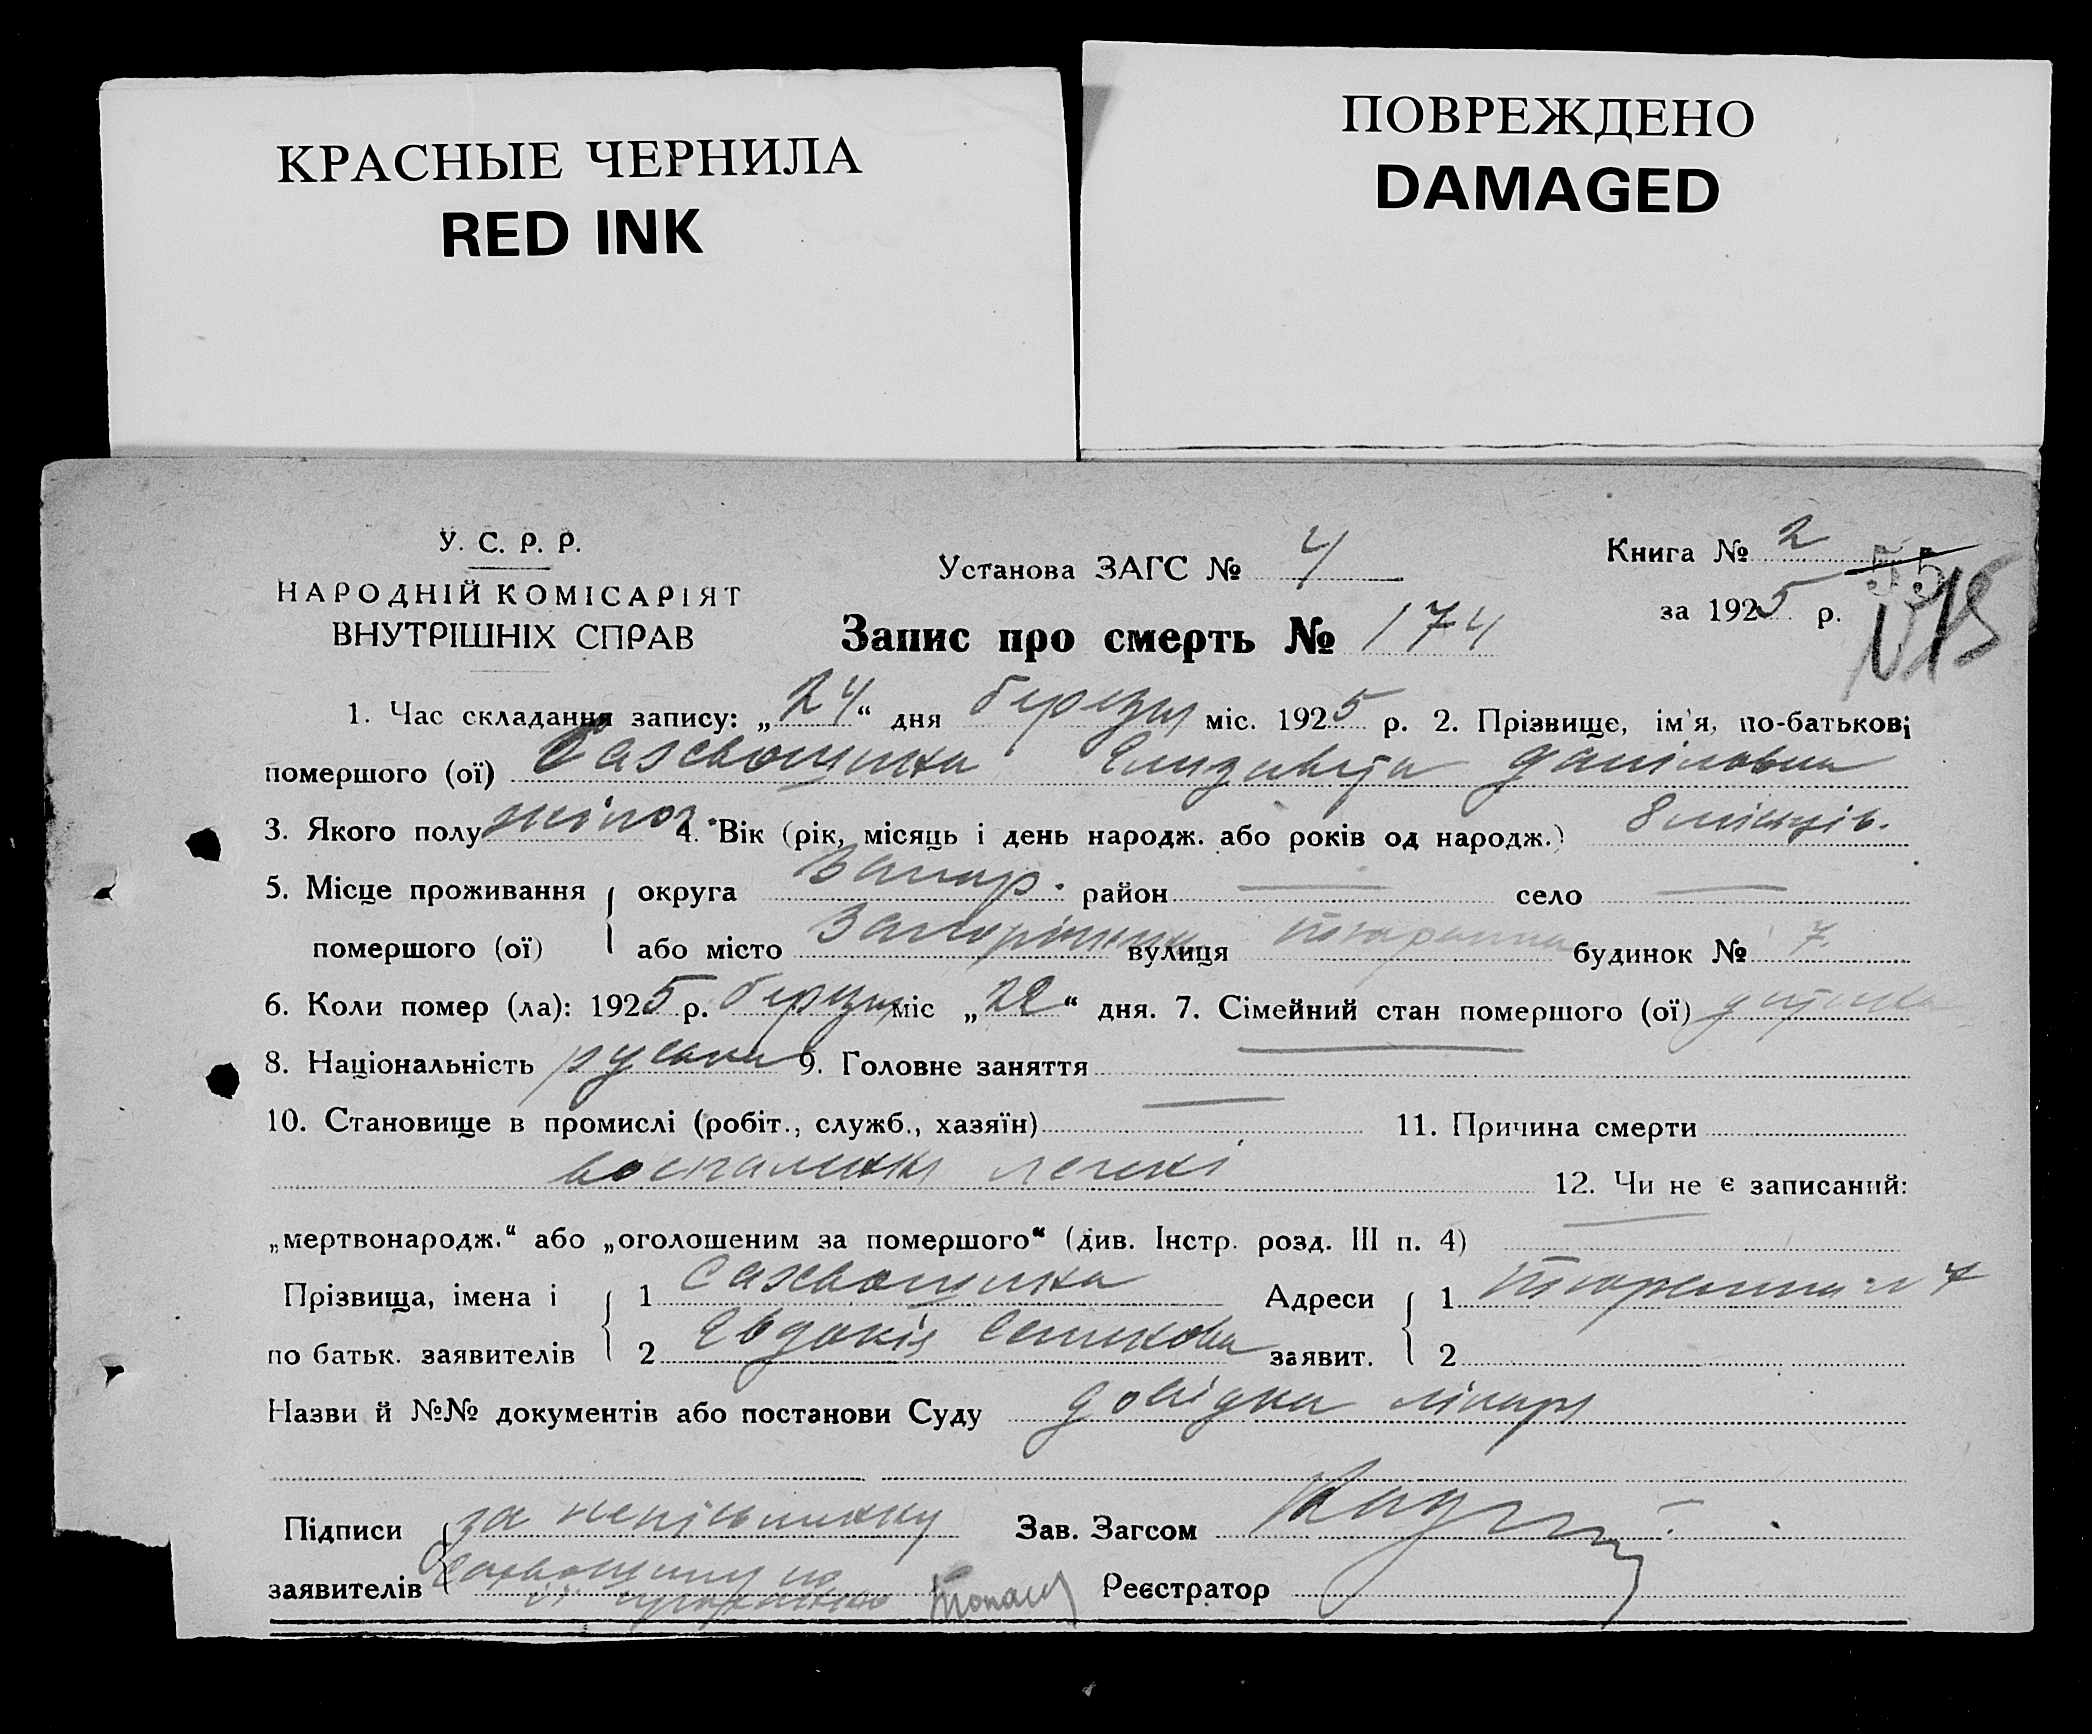 КРАСНЫЕ ЧЕРНИЛА
RED INK
ПОВРЕЖДЕНО
DAMAGED
У. С. Р. Р.
НАРОДНІЙ КОМІСАРІЯТ
ВНУТРІШНІХ СПРАВ
Установа ЗАГС № 4
Запис про смерть № 174
Книга № 2
55
за 1925 р.
1. Час складання запису: „24“ дня березня міс. 1925 р. 2. Прізвище, ім'я, по-батькові
помершого (ої) Єлизавета Даніловна
3. Якого полу жіноч. 4. Вік (рік, місяць і день народж. або років од народж.) 8 місяців.
5. Місце проживання округа Запор. район село
помершого (ої) або місто Запоріжжя вулиця будинок № 7.
6. Коли помер (ла): 1925 р. березня міс „22“ дня. 7. Сімейний стан помершого (ої) дитина
8. Національність руська 9. Головне заняття
10. Становище в промислі (робіт., служб., хазяїн) 11. Причина смерти
воспаления легкі
12. Чи не є записаний:
„мертвонародж.“ або „оголошеним за помершого“ (див. Інстр. розд. III п. 4)
Прізвища, імена і 1 Адреси 1 7
по батьк. заявителів 2 Євдокія заявит. 2
Назви й №№ документів або постанови Суду довідка лікаря
Підписи за неписьменну Зав. Загсом
заявителів Реєстратор